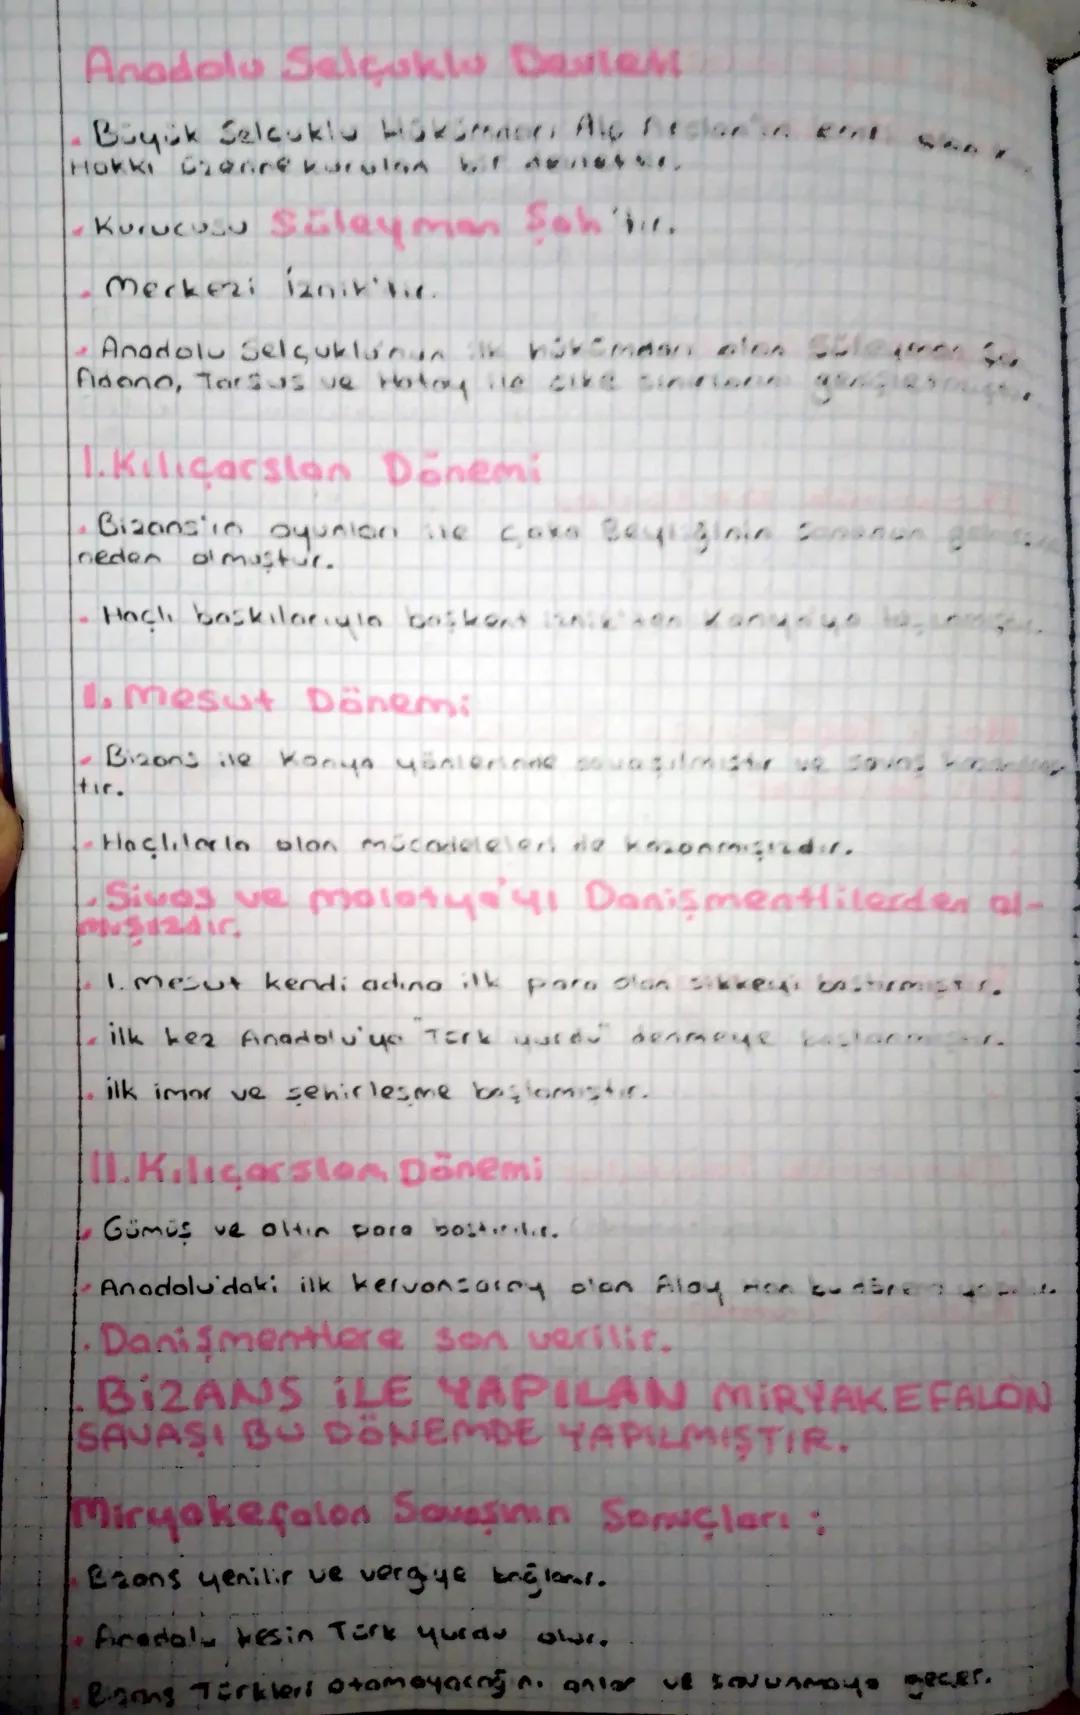 Anadolu Selçuklu Devleti
. Büyük Selçuklu Hükümdarı Alp Arslan'ın emri olan
Hakkı üzerine kurulan bir devlettir.
. Kurucusu Süleyman Şah'tır.
. Merkezi İznik'tir.
. Anadolu Selçuklu'nun ilk hükümdarı olan Süleyman Şah
Adana, Tarsus ve Hatay ile ülke sınırlarını genişletmiştir.
I. Kılıçarslan Dönemi
. Bizans'ın oyunları ile Çaka Beyliğinin sonunun gelmesine
neden olmuştur.
. Haçlı baskılarıyla başkent İznik'ten Konya'ya taşınmıştır.
I. Mesut Dönemi
. Bizans ile Konya yönlerinde savaşılmıştır ve savaş
tır.
. Haçlılarla olan mücadeleleri de kazanmışızdır.
. Sivas ve Malatya'yı Danişmentlilerden al-
mışızdır.
. I. Mesut kendi adına ilk para olan sikkeyi bastırmıştır.
. İlk kez Anadolu'ya "Türk yurdu" denmeye başlanmıştır.
. İlk imar ve şehirleşme başlamıştır.
II. Kılıçarslan Dönemi
. Gümüş ve altın para bastırılır.
. Anadolu'daki ilk kervansaray olan Alay Han bu dönem yapılır.
. Danişmentlere son verilir.
. BİZANS İLE YAPILAN MİRYAKEFALON
SAVAŞI BU DÖNEMDE YAPILMIŞTIR.
Miryakefalon Savaşının Sonuçları :
. Bizans yenilir ve vergiye bağlanır.
. Anadolu kesin Türk yurdu olur.
. Bizans Türkleri atamayacağını anlar ve savunmaya geçer.